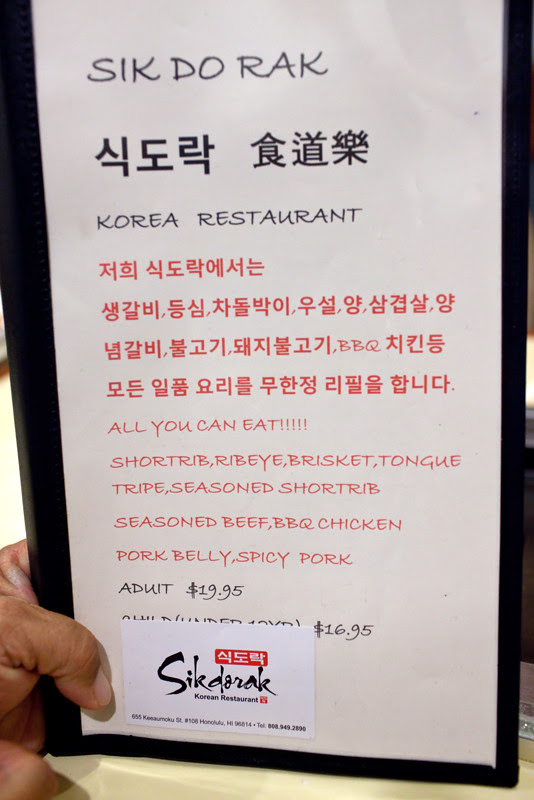 SIK DO RAK
식도락 食道樂
KOREA RESTAURANT
저희 식도락에서는
생갈비,등심,차돌박이,우설,양,삼겹살,양
념갈비,불고기,돼지불고기,BBQ 치킨등
모든 일품 요리를 무한정 리필을 합니다.
ALL YOU CAN EAT!!!!!
SHORTRIB,RIBEYE,BRISKET,TONGUE
TRIPE,SEASONED SHORTRIB
SEASONED BEEF,BBQ CHICKEN
PORK BELLY,SPICY PORK
ADUIT $19.95
CHILD(UNDER 12YR) $16.95
식도락
Sikdorak
Korean Restaurant
655 Keeaumoku St. #108 Honolulu, HI 96814 • Tel: 808.949.2890